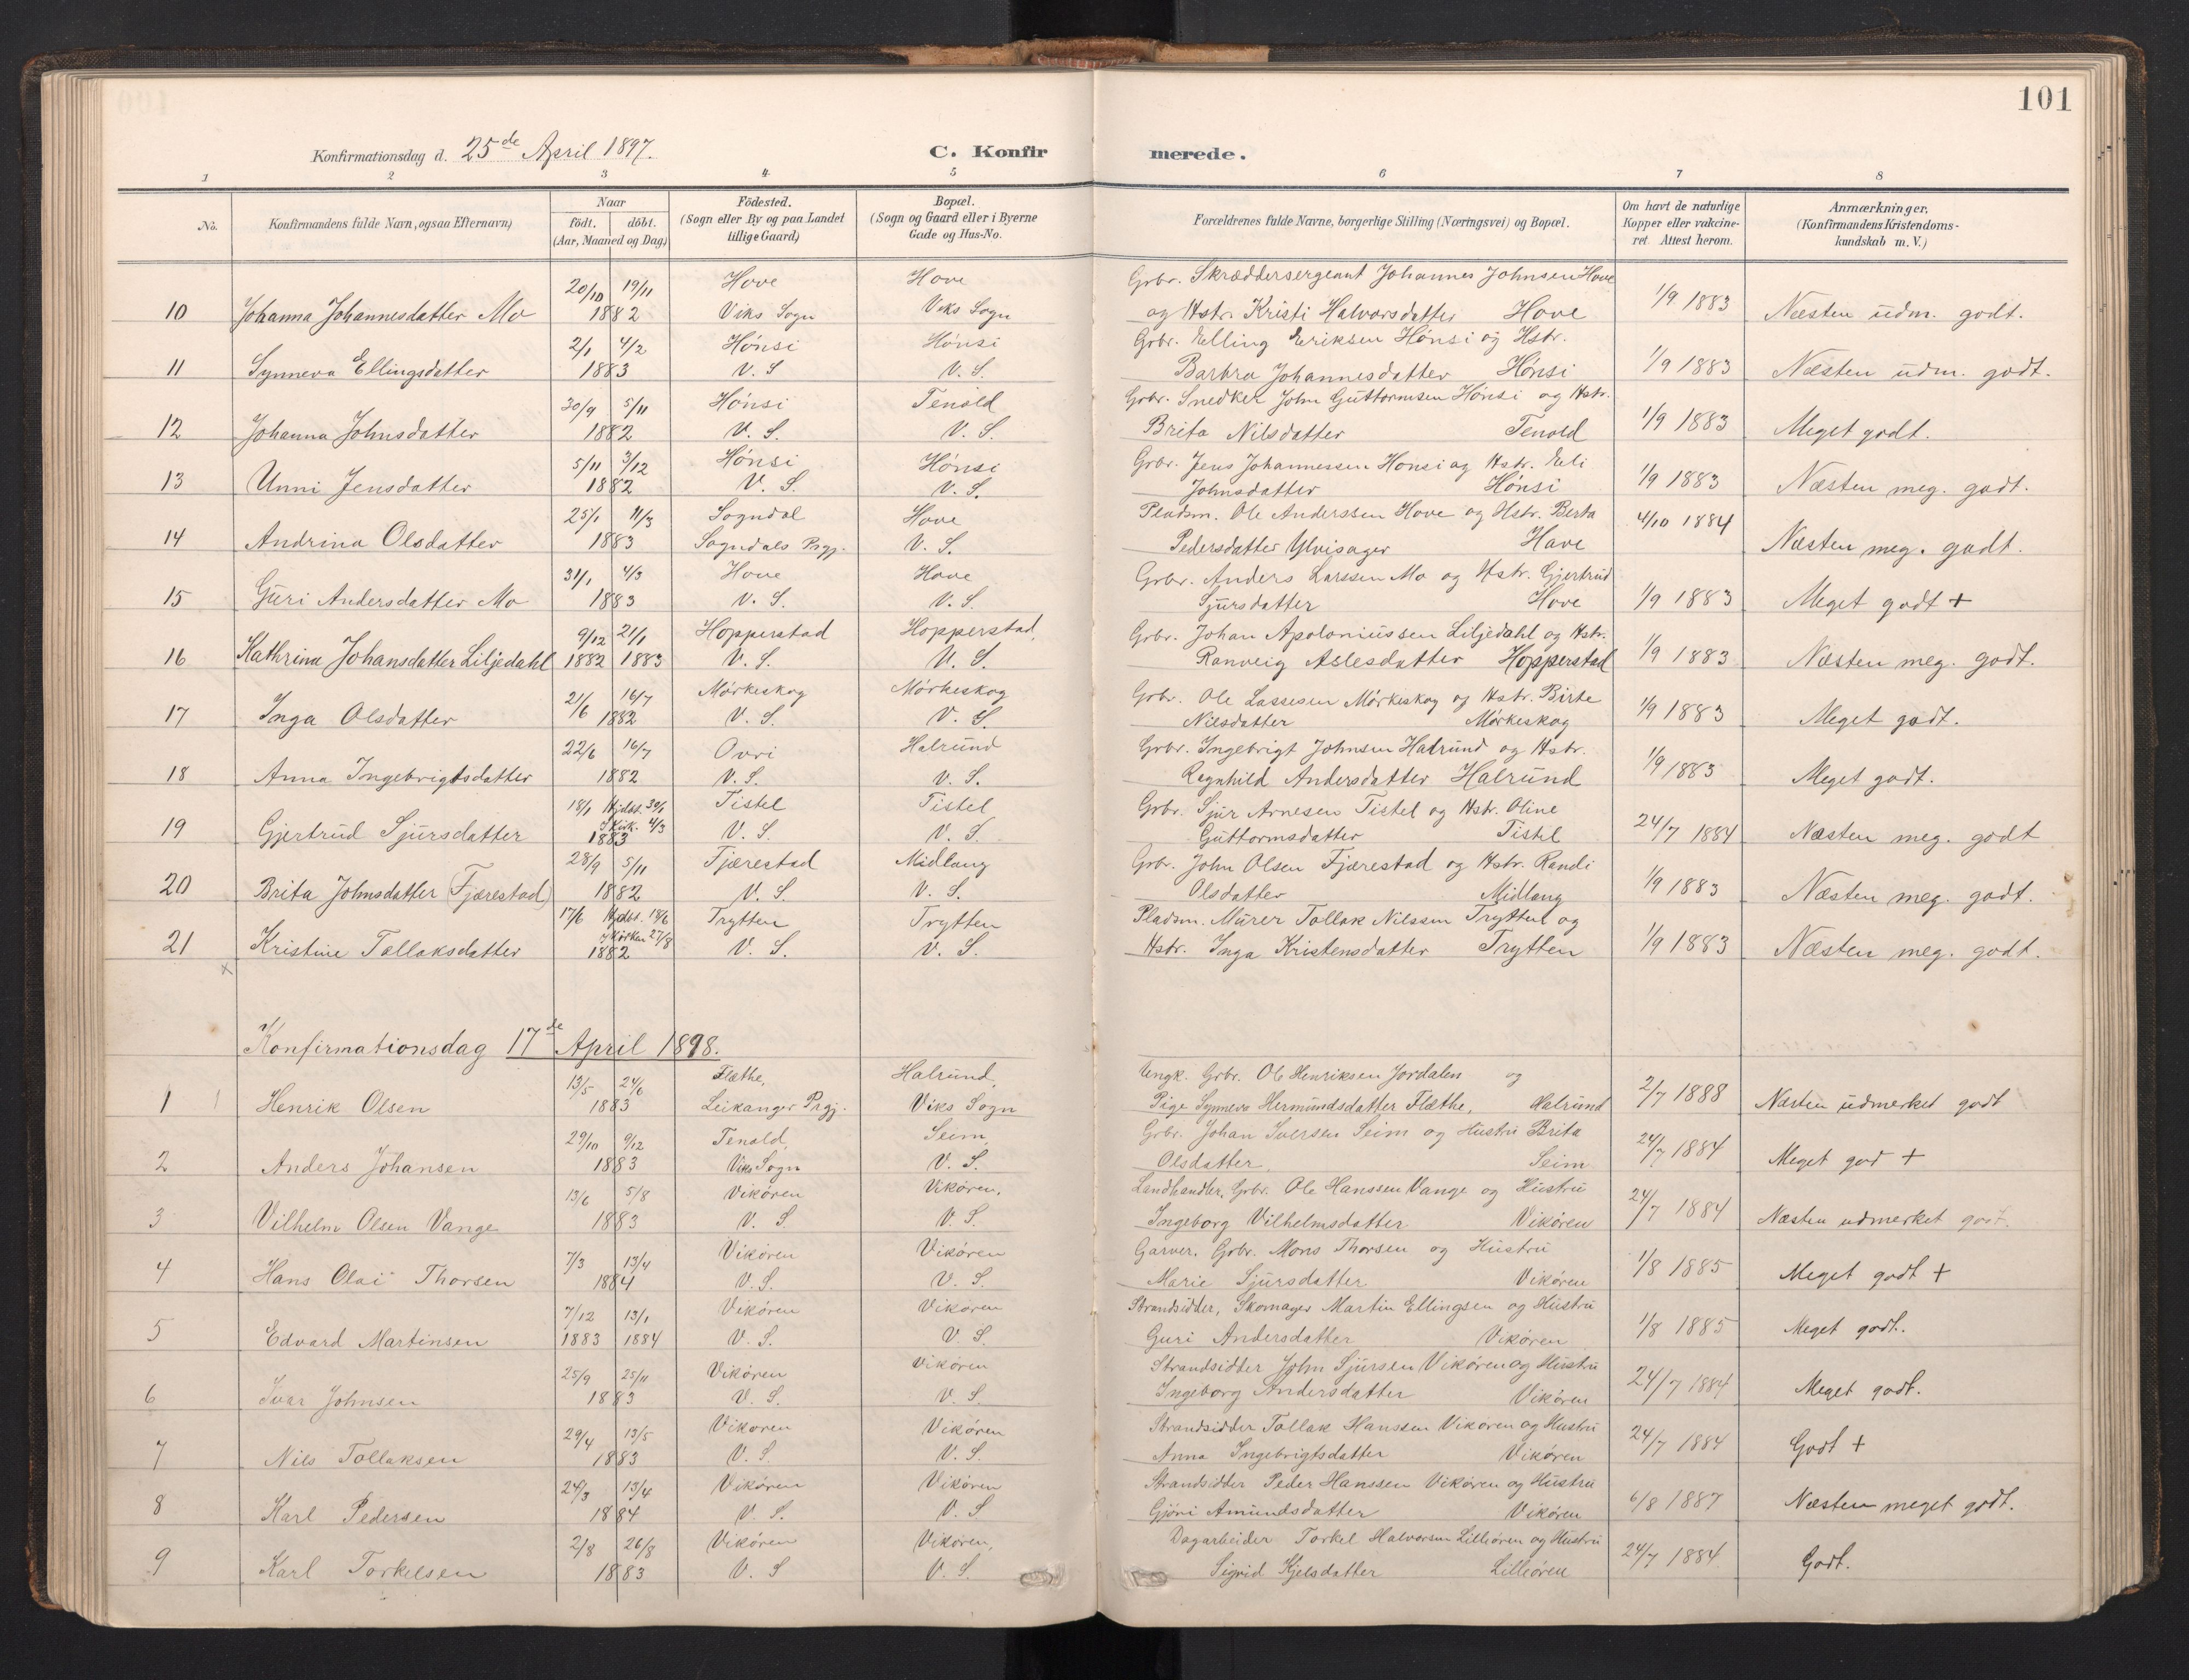 101
Konfirmationsdag d. 25de April 1897.
C. Konfir merede.
1 2 3 4 5 6 7 8
No.
Konfirmandens fulde Navn, ogsaa Efternavn)
Naar
født. døbt.
(Aar, Maaned og Dag)
Fødested.
(Sogn eller By og paa Landet
tillige Gaard)
Bopæl.
(Sogn og Gaard eller i Byerne
Gade og Hus-No.
Forældrenes fulde Navne, borgerlige Stilling (Næringsvei) og Bopæl.
Om havt de naturlige
Kopper eller vakcine-
ret. Attest herom.
Anmærkninger.
(Konfirmandens Kristendoms-
kundskab m. V.)
20/10 19/11 Hove Hove Grbr. Skræddersergeant Johannes Johnsen Hove
10 Johanna Johannesdatter Mo 1882 Viks Sogn Viks Sogn og Hstr. Kristi Halvorsdatter Hove 1/9 1883 Næsten udm. godt.
2/1 4/2 Hønsi Hønsi Grbr. Elling Eriksen Hønsi og Hstr.
11 Synneva Ellingsdatter 1883 V. S V. S. Barbra Johannesdatter Hønsi 1/9 1883 Næsten udm. godt.
30/9 5/11 Hønsi Tenold Grbr. Snedker John Guttormsen Hønsi og Hstr.
12 Johanna Johnsdatter 1882 V. S. V. S. Brita Nilsdatter Tenold 1/9 1883 Meget godt.
5/11 3/12 Hønsi Hønsi Grbr. Jens Johannessen Hønsi og Hstr. Eli
13 Unni Jensdatter 1882 V. S. V. S. Johnsdatter Hønsi 1/9 1883 Næsten meg. godt.
25/1 11/3 Sogndal Hove Pladsm. Ole Anderssen Hove og Hstr. Berta
14 Andrina Olsdatter 1883 Sogndals Prgj. V. S. Pedersdatter Ylvisager Hove 4/10 1884 Næsten meg. godt.
31/1 4/3 Hove Hove Grbr. Anders Larssen Mo og Hstr. Gjertrud
15 Guri Andersdatter Mo 1883 V. S. V. S. Sjursdatter Hove 1/9 1883 Meget godt +
9/12 21/1 Hopperstad Hopperstad, Grbr. Johan Apoloniussen Liljedahl og Hstr.
16 Kathrina Johansdatter Liljedahl 1882 1883 V. S. V. S. Ranveig Aslesdatter Hopperstad 1/9 1883 Næsten meg. godt.
21/6 16/7 Mørkeskog Mørkeskog Grbr. Ole Lassesen Mørkeskog og Hstr. Birte
17 Inga Olsdatter 1882 V. S. V. S. Nilsdatter Mørkeskog 1/9 1883 Meget godt.
22/6 16/7 Ovri Halrund Grbr. Ingebrigt Johnsen Halrund og Hstr.
18 Anna Ingebrigtsdatter 1882 V. S. V. S. Ragnhild Andersdatter Halrund 1/9 1883 Meget godt.
18/1 Hjdbt. 30/1 Tistel Tistel Grbr. Sjur Arnesen Tistel og Hstr. Oline
I Kirk. 4/3
19 Gjertrud Sjursdatter 1883 V. S. V. S. Guttormsdatter Tistel 24/7 1884 Næsten meg. godt
28/9 5/11 Fjærestad Midlang Grbr. John Olsen Fjærestad og Hstr. Randi
20 Brita Johnsdatter (Fjærestad) 1882 V. S. V. S. Olsdatter Midlang 1/9 1883 Næsten meg. godt.
17/6 Hjdbt. 18/6 Trytten Trytten Pladsm. Murer Tollak Nilssen Trytten og
I Kirken 27/8
21 Kristine Tollaksdatter 1882 V. S. V. S. Hstr. Inga Kristensdatter Trytten 1/9 1883 Næsten meg. godt.
x
Konfirmationsdag 17de April 1898.
13/5 24/6 Flæthe, Halrund, Ungk. Grbr. Ole Henriksen Jordalen og
1 Henrik Olsen 1883 Leikanger Prgj. Viks Sogn Pige Synneva Hermundsdatter Flæthe, Halrund 2/7 1888 Næsten udmerket godt
29/10 9/12 Tenold, Seim, Grbr. Johan Iversen Seim og Hustru Brita
2 Anders Johansen 1883 Viks Sogn V. S. Olsdatter, Seim 24/7 1884 Meget god +
13/6 5/8 Vikøren Vikøren, Landhandler, Grbr. Ole Hanssen Vange og Hustru
3 Vilhelm Olsen Vange 1883 V. S. V. S. Ingeborg Vilhelmsdatter Vikøren 24/7 1884 Næsten udmerket godt.
7/3 13/4 Vikøren Vikøren Garver. Grbr. Mons Thorsen og Hustru
4 Hans Olai Thorsen 1884 V. S. V. S. Marie Sjursdatter Vikøren 1/8 1885 Meget godt +
7/12 13/1 Vikøren Vikøren Strandsidder, Skomager Martin Ellingsen og Hustru
5 Edvard Martinsen 1883 1884 V. S. V. S. Guri Andersdatter Vikøren 1/8 1885 Meget godt.
25/9 25/11 Vikøren Vikøren Strandsidder John Sjursen Vikøren og Hustru
6 Ivar Johnsen 1883 V. S. V. S. Ingeborg Andersdatter Vikøren 24/7 1884 Meget godt.
29/4 13/5 Vikøren Vikøren Strandsidder Tollak Hanssen Vikøren og Hustru
7 Nils Tollaksen 1883 V. S. V. S. Anna Ingebrigtsdatter Vikøren 24/7 1884 Godt +
24/3 13/4 Vikøren Vikøren Strandsidder Peder Hanssen Vikøren og Hustru
8 Karl Pedersen 1884 V. S. V. S Gjøri Amundsdatter Vikøren 6/8 1887 Næsten meget godt.
2/8 26/8 Vikøren Vikøren, Dagarbeider Torkel Halvorsen Lilleøren og Hustru
9 Karl Torkelsen 1883 V. S V. S. Sigrid Kjelsdatter Lilleøren 24/7 1884. Godt.